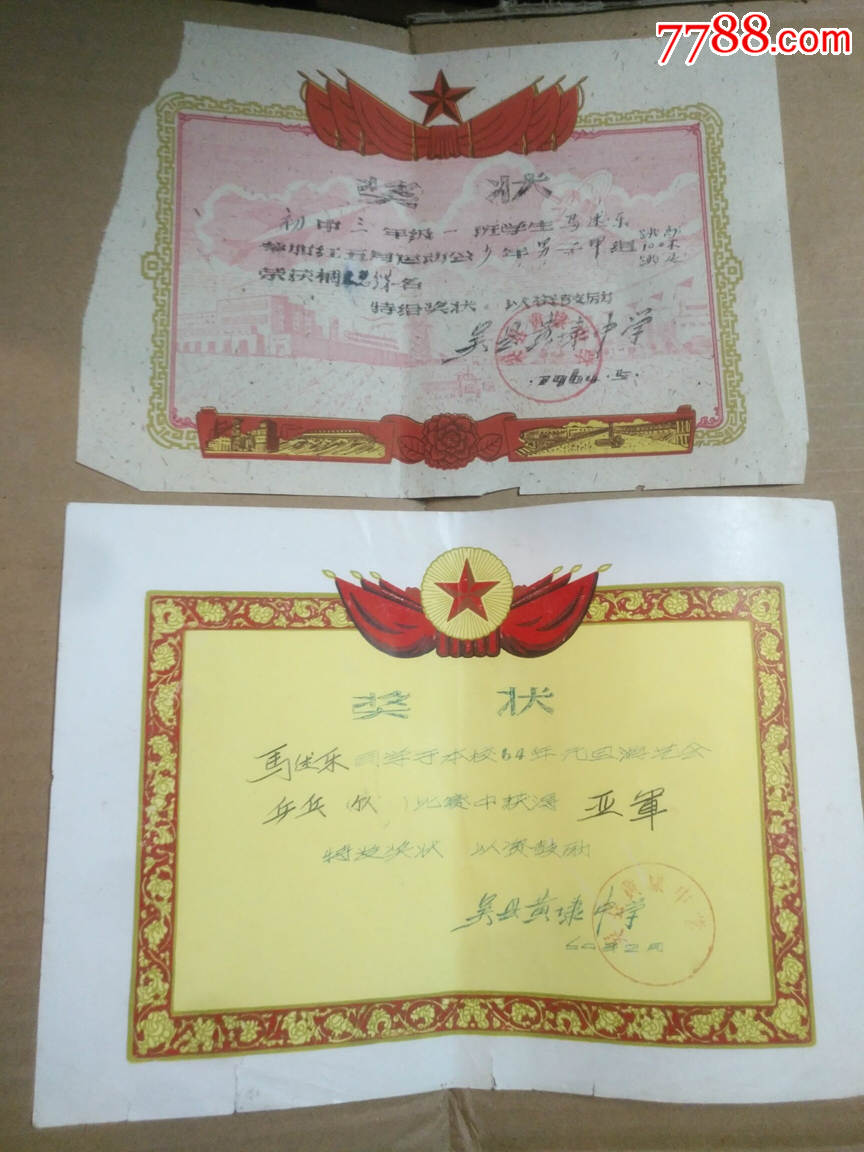 7788.com
奖状
初中三年级一班学生马述乐
跳高
100米
跳远
五月运动会少年男子甲组
荣获
特给奖状 以资
吴县黄埭中学
奖状
马述乐同学于本校64年元旦游艺会
乒乓 比赛中获得 亚军
特发奖状 以资鼓励
吴县黄埭中学